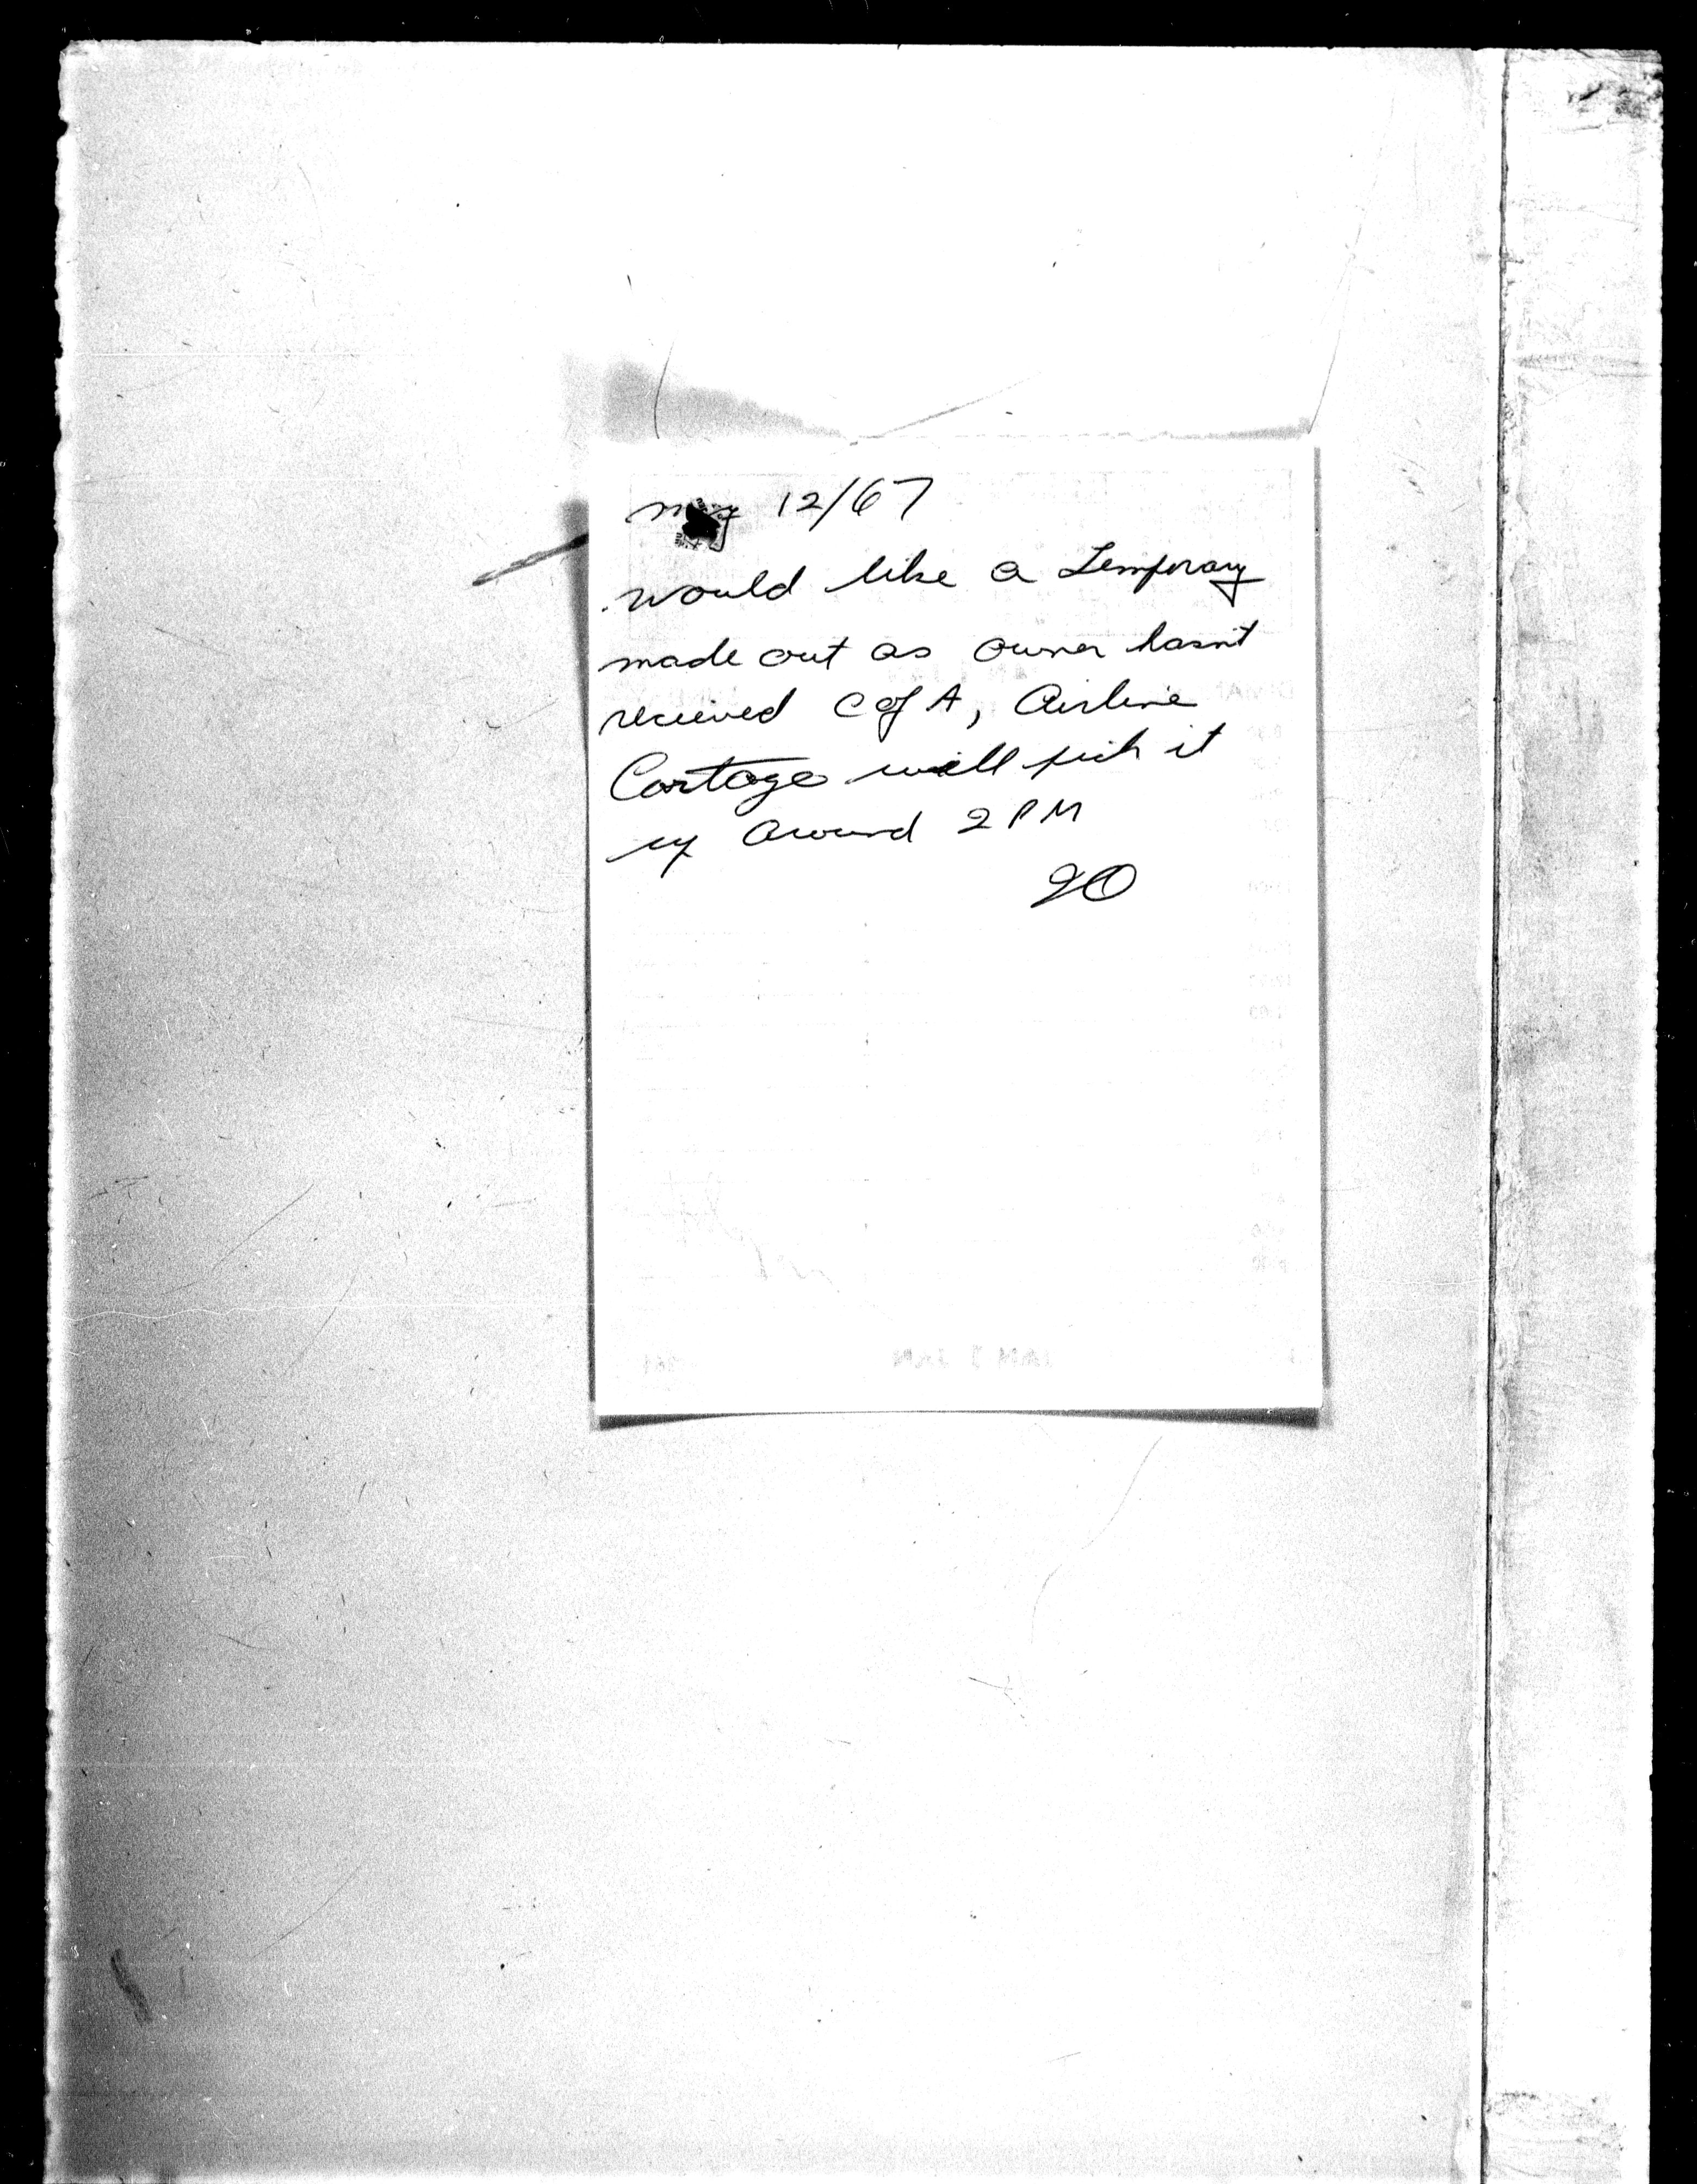 May 12/67
would like a Temporary
made out as owner hasn't
received C of A, Airline
Cartage will pick it
up around 2 PM